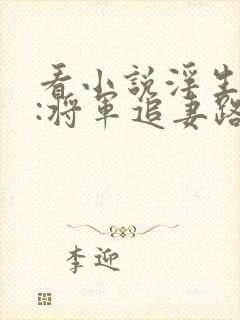 看小說淫生
:將軍追妻路
李迎